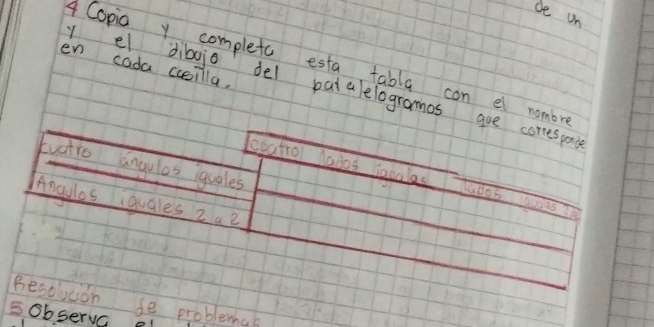 de un
4 Copia y completa esta tabla con el nombre
y el dibujo del paralelogramos que corresponde
en cada casilla.
Cuatro lados iguales lados iguales 2a2
Cuatro ángulos iguales
Angulos iguales 2 a 2
Resolución de problemas
5 Observa el